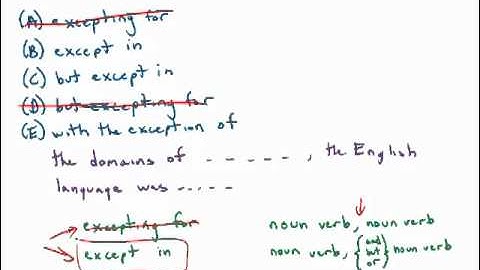 (A) excepting for
(B) except in
(C) but except in
(D) but excepting for
(E) with the exception of
the domains of _ _ _ _ _ , the English
language was .....
excepting for
except in
noun verb, noun verb
noun verb, { and but or } noun verb